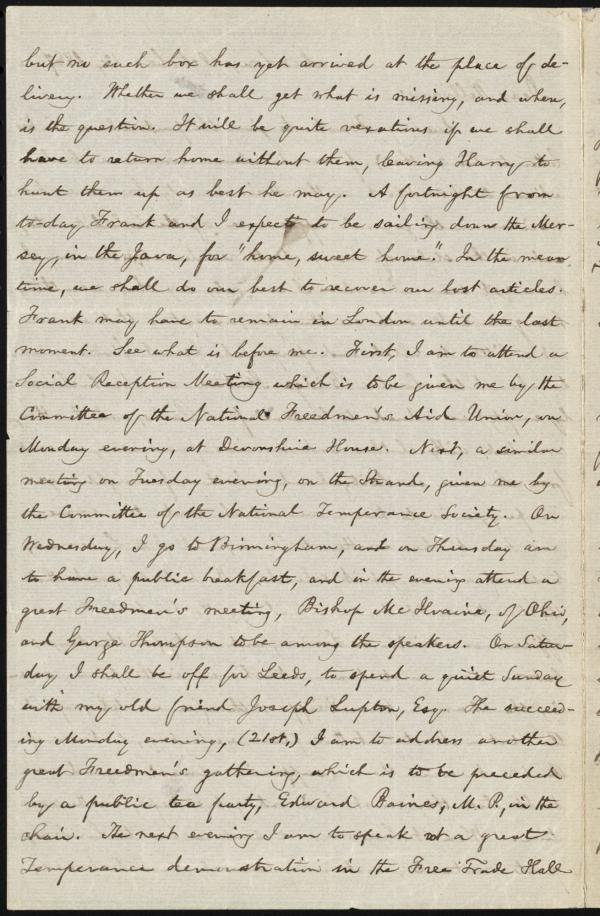 but no such box has yet arrived at the place of de-
livery. Whether we shall get what is missing, and when,
is the question. It will be quite vexatious if we shall
have to return home without them, leaving Harry to
hunt them up as best he may. A fortnight from
to-day, Frank and I expect to be sailing down the Mer-
sey, in the Java, for "home, sweet home." In the mean
time, we shall do our best to recover our lost articles.
Frank may have to remain in London until the last
moment. See what is before me. First, I am to attend a
Social Reception Meeting which is to be given me by the
Committee of the National Freedmen's Aid Union, on
Monday evening, at Devonshire House. Next, a similar
meeting on Tuesday evening, on the Strande, given me by
the Committee of the National Temperance Society. On
Wednesday, I go to Birmingham, and on Thursday am
to have a public breakfast, and in the evening attend a
great Freedmen's meeting, Bishop McIlvaine, of Ohio,
and George Thompson to be among the speakers. On Satur-
day I shall be off for Leeds, to spend a quiet Sunday
with my old friend Joseph Lupton, Esq. The succeed-
ing Monday evening, (21st,) I am to address another
great Freedmen's gathering, which is to be preceded
by a public tea party, Edward Baines, M. P., in the
chair. The next evening I am to speak at a great
Temperance demonstration in the Free Trade Hall